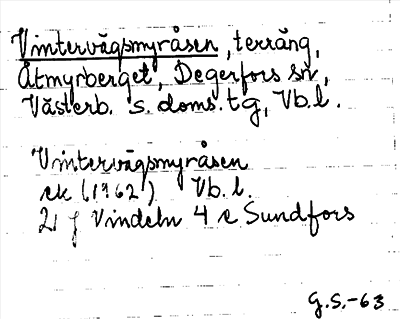 Vintervägsmyråsen, terräng,
Åtmyrberget, Degerfors sn,
Västerb. s. doms. tg, Vb. l.
Vintervägsmyråsen
ek (1962) Vb. l.
21 J Vindeln 4 e Sundfors
G.S.-63